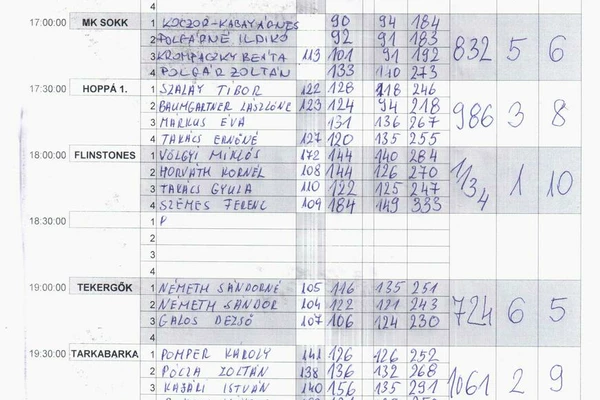 4
17:00:00 MK SOKK 1 KOCZOR-KABAY ÁGNES 90 94 184 832 5 6
2 POLGÁRNÉ ILDIKÓ 92 91 183
3 KROMPACZKY BEÁTA 113 101 91 192
4 POLGÁR ZOLTÁN 133 140 273
17:30:00 HOPPÁ 1. 1 SZALAY TIBOR 122 128 118 246 986 3 8
2 BAUMGARTNER LÁSZLÓNÉ 123 124 94 218
3 MÁRKUS ÉVA 131 136 267
4 TAKÁCS ERNŐNÉ 127 120 135 255
18:00:00 FLINSTONES 1 VÖLGYI MIKLÓS 172 144 140 284 1134 1 10
2 HORVÁTH KORNÉL 108 144 126 270
3 TAKÁCS GYULA 110 122 125 247
4 SZEMES FERENC 109 184 149 333
18:30:00 1 P
2
3
4
19:00:00 TEKERGŐK 1 NÉMETH SÁNDORNÉ 105 116 135 251 724 6 5
2 NÉMETH SÁNDOR 104 122 121 243
3 GALOS DEZSŐ 107 106 124 230
4
19:30:00 TARKABARKA 1 POMPER KÁROLY 141 126 126 252 1061 2 9
2 PÓCZA ZOLTÁN 138 136 132 268
3 KAJÁRI ISTVÁN 140 156 135 291